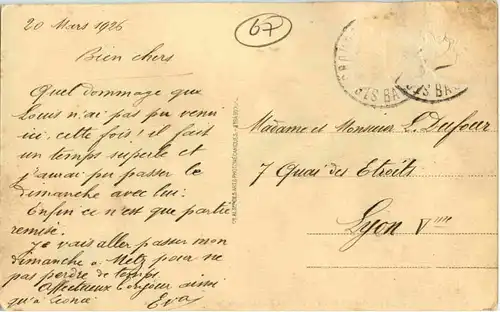 20 Mars 1926
67
Bien chers
Quel dommage que
Louis n'ai pas pu venir
ici, cette fois! il fait
un temps superbe et
j'aurai pu passer le
dimanche avec lui.
Enfin ce n'est que partie
remise.
Je vais aller passer mon
dimanche a Metz pour ne
pas perdre de temps
Affectueux bonjour ainsi
qu'à
Eva
Madame et Monsieur L. Dufour
7 Quai des Etroits
Lyon Vme